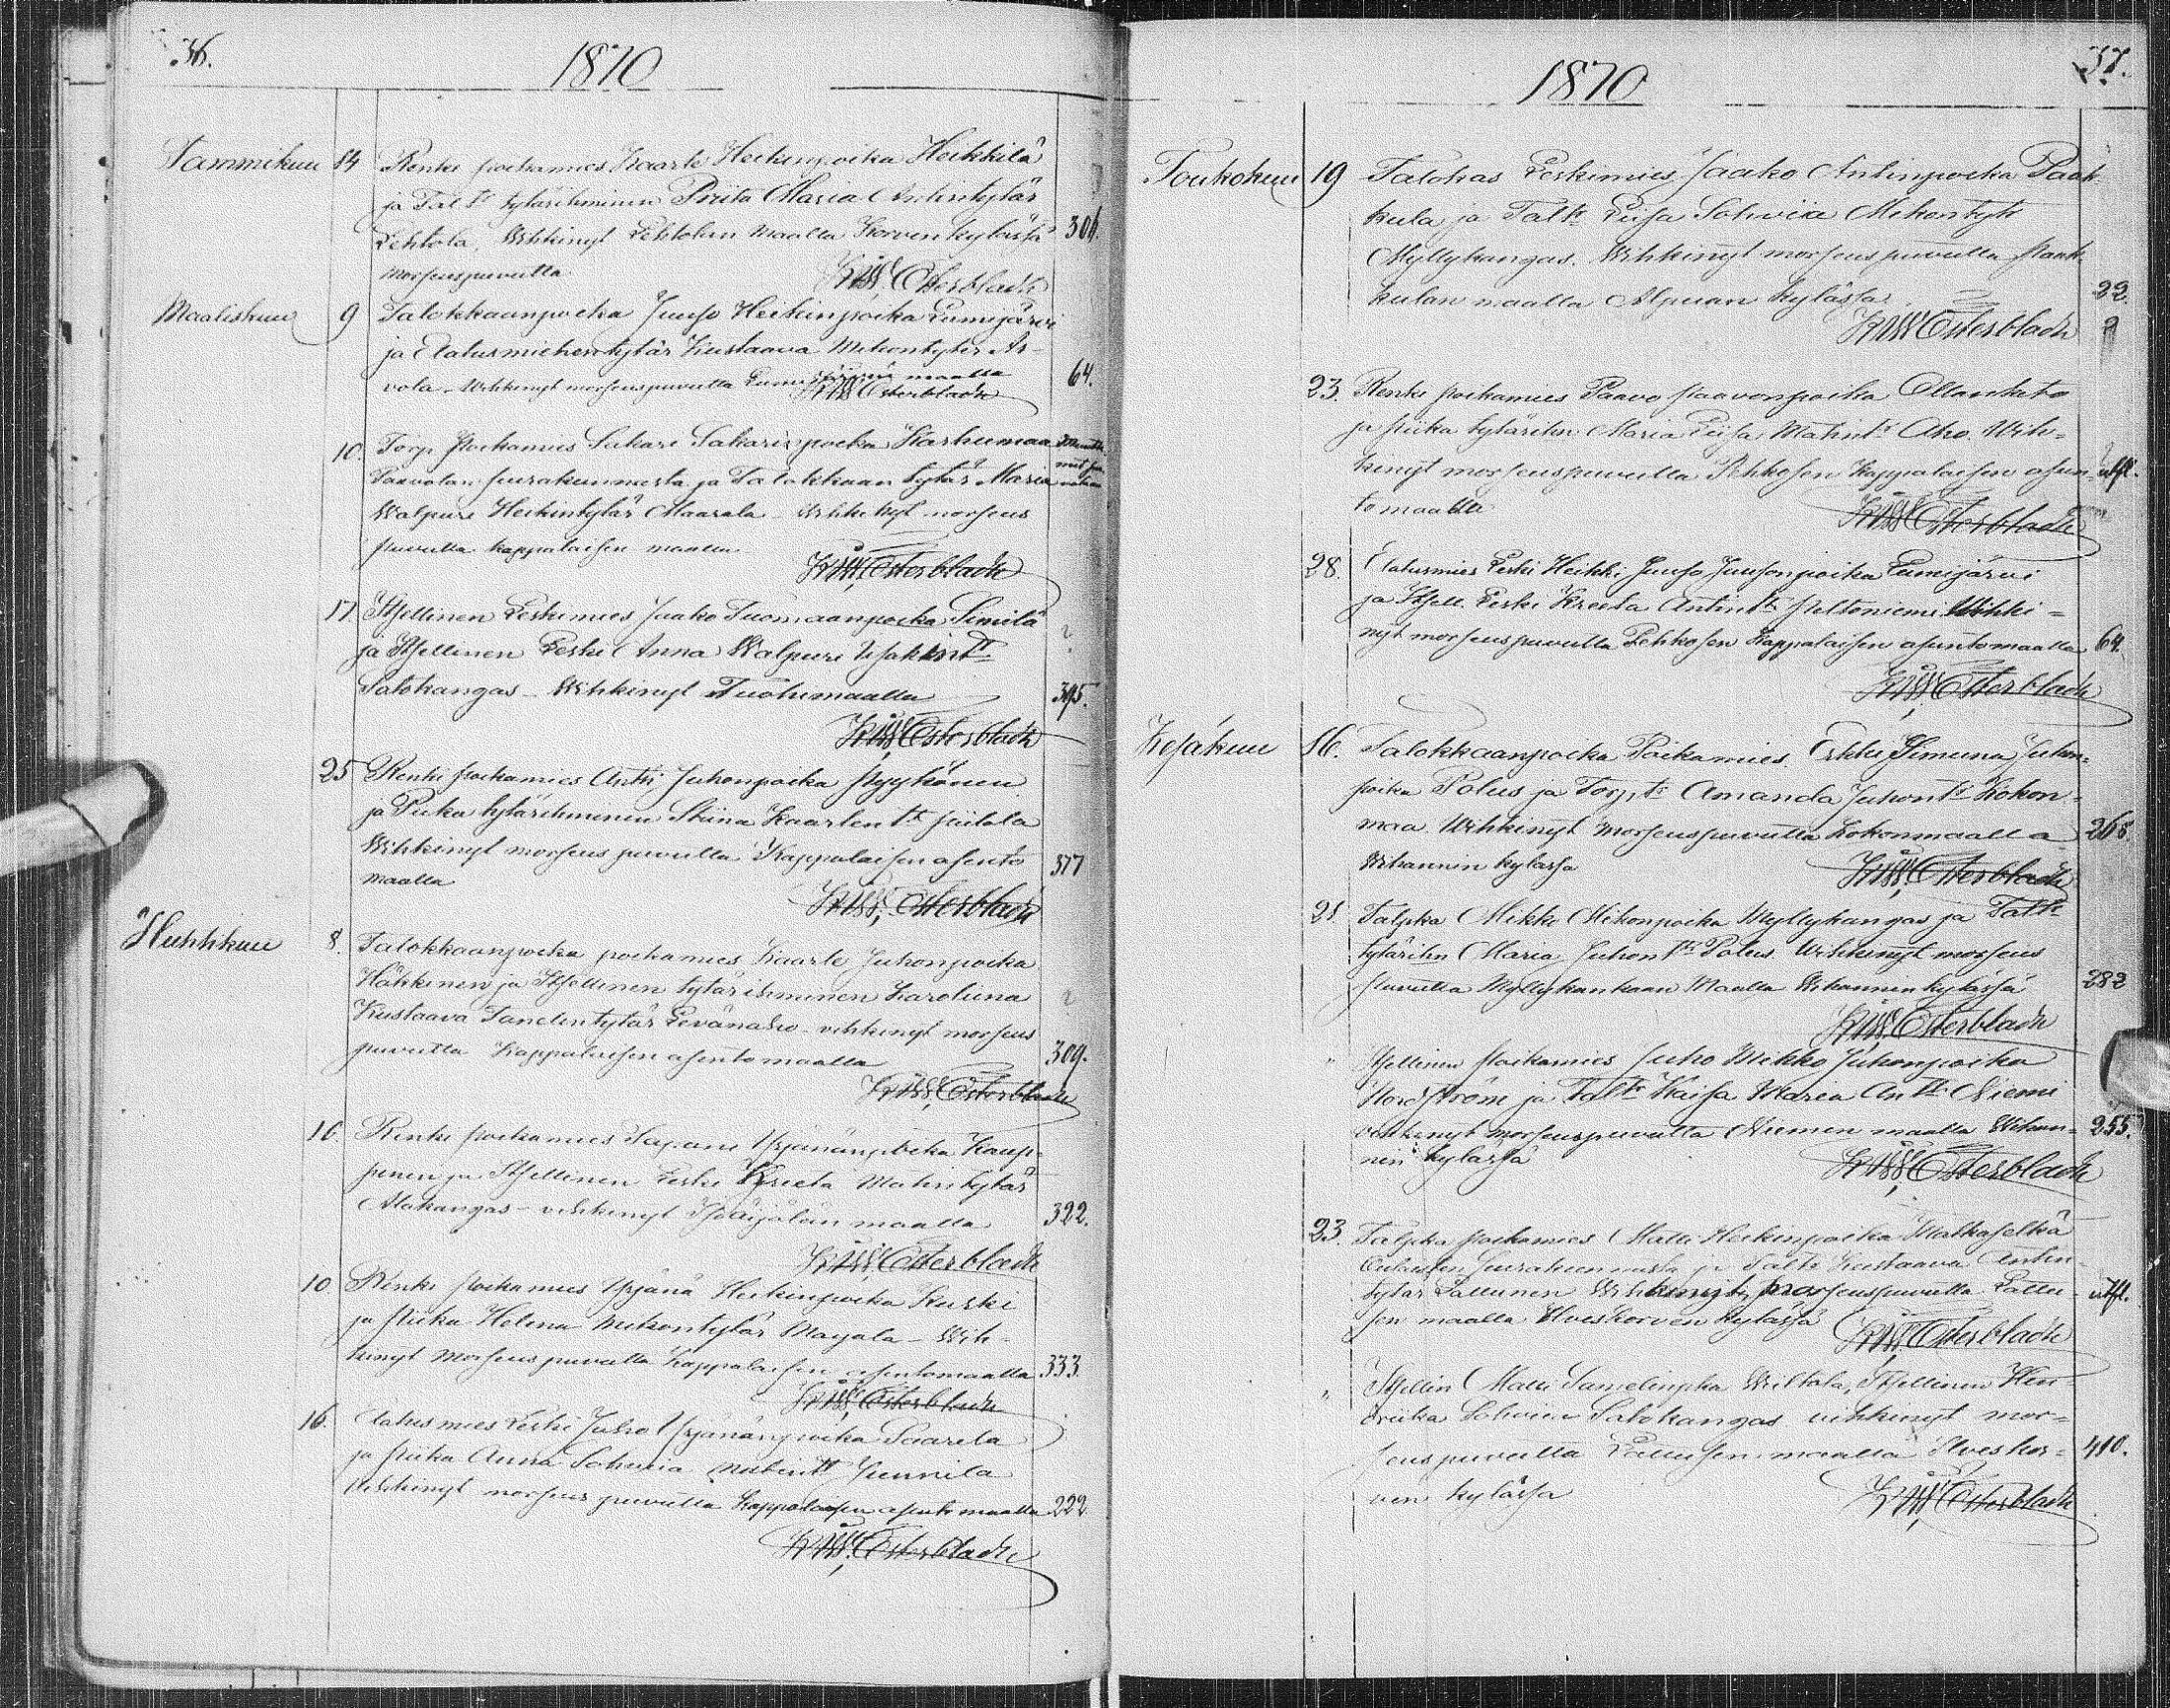 36.
1870
Tammikuu 84 Renki poikamies Kaarle Heikinpoika Heikkilä
ja Talt tytärihminen Priita Maria Antintytär
Lehtola, Wihkinyt Lehtolan maalla Korven kylässä 306.
morseuspuvulla KWÖsterbladh
Maaliskuu 9 Talokkaanpoika Juuso Heikinpoika Lumijärvi
ja Elatusmiehentytär Kustaava Mikontytär Ar-
vola. Wihkinyt morseuspuvulla Lumijärven maalla 64.
KWÖsterbladh
10. Torp. Poikamies Sakari Sakarinpoika Karhumaa
Paavolan seurakunnasta ja Talokkaan tytär Maria
Walpuri Heikintytär Maarala Wihkinyt morseus
puvulla kappalaisen maalla
KWÖsterbladh
17 Itsellinen Leskimies Jaako Tuomaanpoika Similä ?
ja Itsellinen Leski Anna Walpuri Isakint
Salokangas Wihkinyt Tuolumaalla 395.
KWÖsterbladh
25 Renki poikamies Antti Juhonpoika Pyykönen
ja Piika tytärihminen Stiina Kaarlent Piilola
Wihkinyt morseus puvulla Kappalaisen asento 377
maalla
KWÖsterbladh
Huhtikuu 8. Talokkaanpoika poikamies Kaarle Juhonpoika
Hähkinen ja Itsellinen tytärihminen Karoliina ?
Kustaava Tanelintytär Levänaho vihkinyt morseus
puvulla Kappalaisen asentomaalla 309.
KWÖsterbladh
16. Renki poikamies Tapani Yrjänänpoika Kaup-
pinen ja Itsellinen Leski Kreeta Matintytär
Alakangas - vihkinyt maalla 322.
KWÖsterbladh
10 Renki poikamies Yrjänä Heikinpoika Kurki
ja Piika Helena Mikontytär Mayala - Wih-
kinyt morseus puvulla Kappalaisen asentomaalla 333.
KWÖsterbladh
16. Elatusmies Leski Juho Yrjänänpoika Saarela
ja Piika Anna Sohwia Junnila
Wihkinyt morseus puvulla Kappalaisen asentomaalla 222
KWÖsterbladh
37.
1870
Toukokuu 19 Talokas Leskimies Jaako Antinpoika Paak-
kula ja Talt Liisa Sohwia Mikontyt
Myllykangas. Wihkinyt morseuspuvulla Paak-
kulan maalla Alpuan kylässä. 22.
KWÖsterbladh ?
23. Renki poikamies Paavo Paavonpoika Ollanketo
ja Piika tytärihn Maria Liisa Matint Aho. Wih-
kinyt morseuspuvulla Pehkosen Kappalaisen asun- utfl.
tomaalla
KWÖsterbladh
28. Elatusmies Leski Heikki Juuso Juusonpoika Lumijärvi
ja Itsell. Leski Kreeta Antint Peltoniemi Wihki-
nyt morseuspuvulla Pehkosen Kappalaisen asuntomaalla 64.
KWÖsterbladh
Kesäkuu 16. Talokkaanpoika Poikamies Erkki Simuna Juhon-
poika Polus ja Torpt Amanda Juhont Kokon-
maa Wihkinyt morseuspuvulla Kokonmaalla 265.
Wihannin kylässä KWÖsterbladh
21. Talpka Mikko Mikonpoika Myllykangas ja Talt
tytärihn Maria Juhont Polus Wihkinyt morseus
puvulla Myllykankaan Maalla Wihanninkylässä 282
KWÖsterbladh
" Itsellinen Poikamies Juho Mikko Juhonpoika
Nordström ja Talt Kaisa Maria Antt Niemi
vihkinyt morseuspuvulla Niemen maalla Wihan- 255.
nin kylässä KWÖsterbladh
23. Talpka poikamies Matti Heikinpoika Matkaselkä
Oulaisen seurakunnasta ja Talt Kustaava Antin-
tytär Lallunen Wihkinyt morseuspuvulla Lallu- utfl.
sen maalla Ilveskorven kylässä
KWÖsterbladh
" Itsellin Matti Samelinpka Wiltala, Itsellinen Hen
riika Sohwia Salokangas vihkinyt mor-
seuspuvulla Lallusen maalla Ilveskor- 410.
ven kylässä
KWÖsterbladh